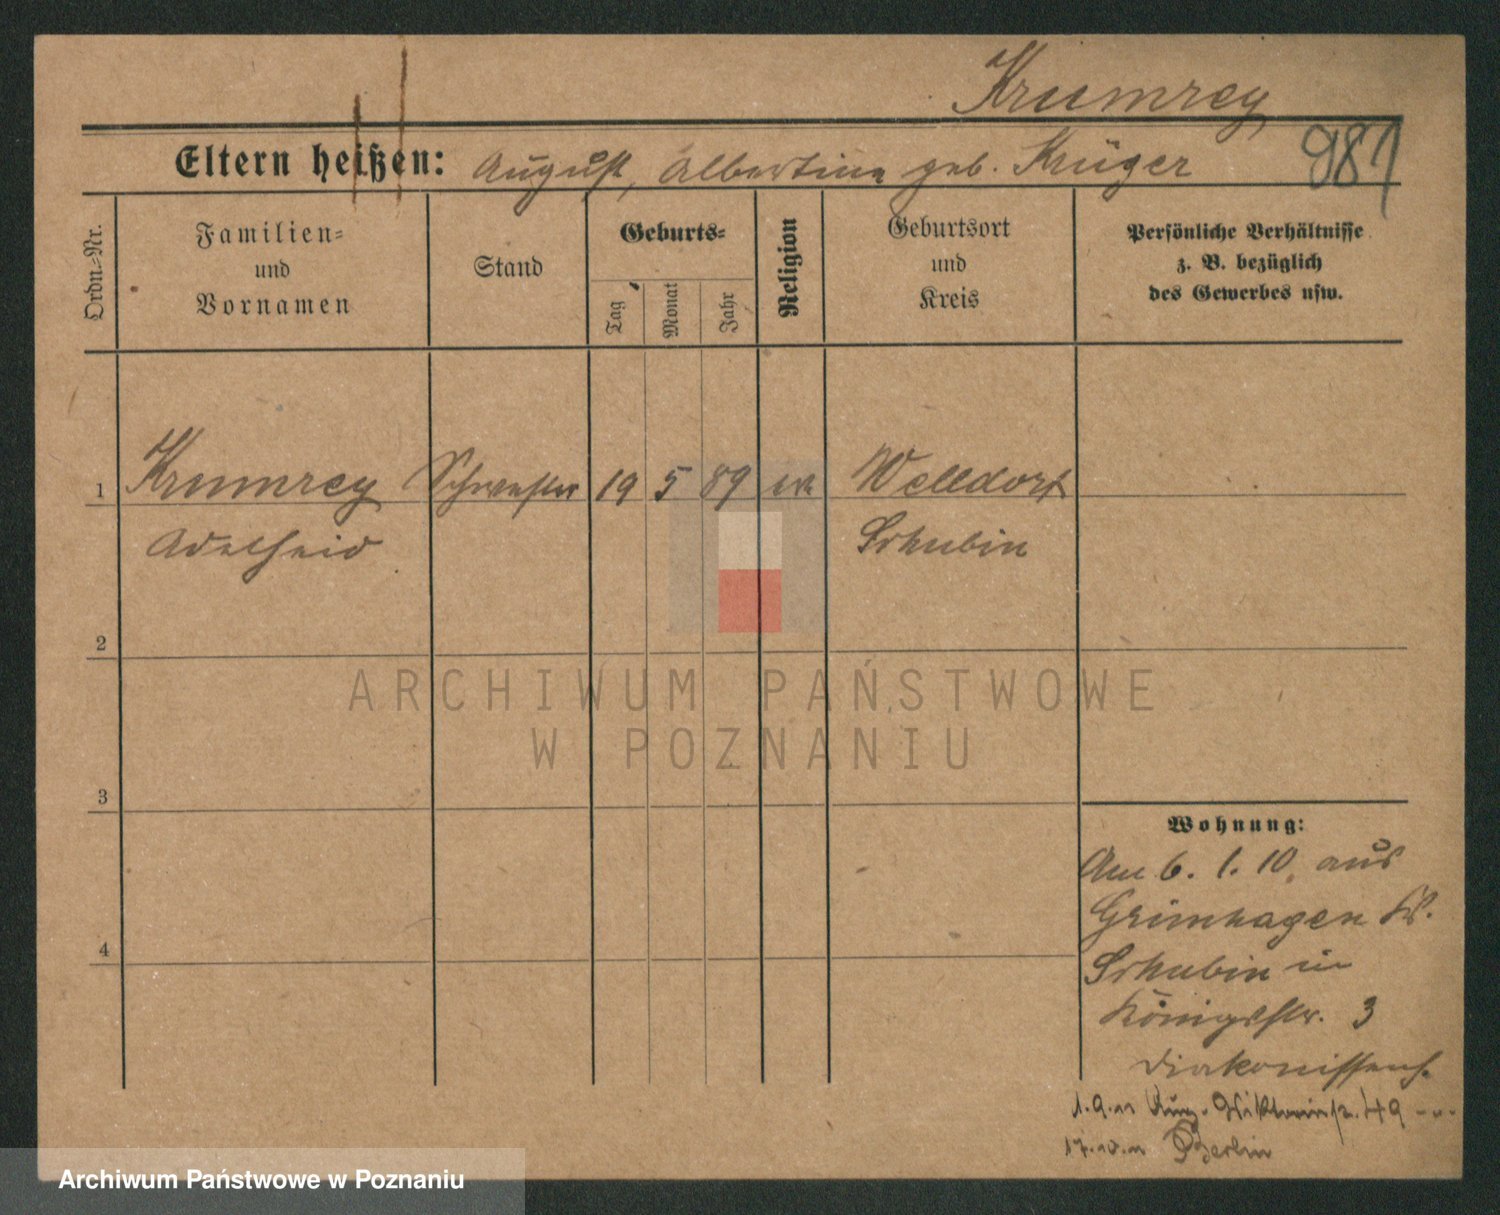 Krumrey
Eltern heißen: August, Albertine geb. Krüger
981
Ordn-Nr.
Familien-
und
Vornamen
Stand
Geburts-
Tag
Monat
Jahr
Religion
Geburtsort
und
Kreis
Persönliche Verhältnisse
z. B. bezüglich
des Gewerbes usw.
1 Krumrey Schwester 19 5 89 ev. Welldorf
Adelheid Schubin
2
ARCHIWUM PAŃSTWOWE
W POZNANIU
3
Wohnung:
Am 6. 1. 10. aus
Grünhagen Kr.
4
Schubin in
Königsstr. 3
Diakonissenh.
1.9.11 Aug. Viktoriastr. 49
17.10.11 Berlin
Archiwum Państwowe w Poznaniu